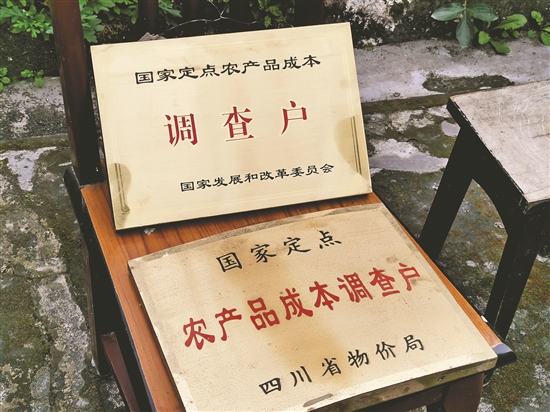 国家定点农产品成本
调查户
国家发展和改革委员会
国家定点
农产品成本调查户
四川省物价局